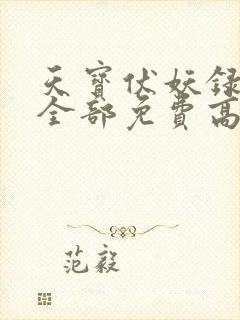 天寶伏妖録
全部免費高
范毅